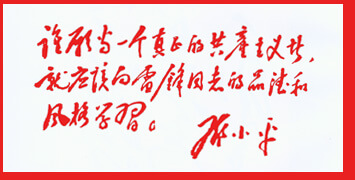 谁愿当一个真正的共产主义者，
就应该向雷锋同志的品德和
风格学习。
邓小平